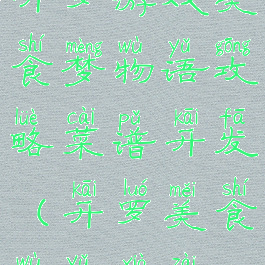 游戏
shí mèng wù yǔ gōng
食梦物语攻
luè cài pǔ kāi fā
略菜谱开发
kāi luó měi shí
(开罗美食